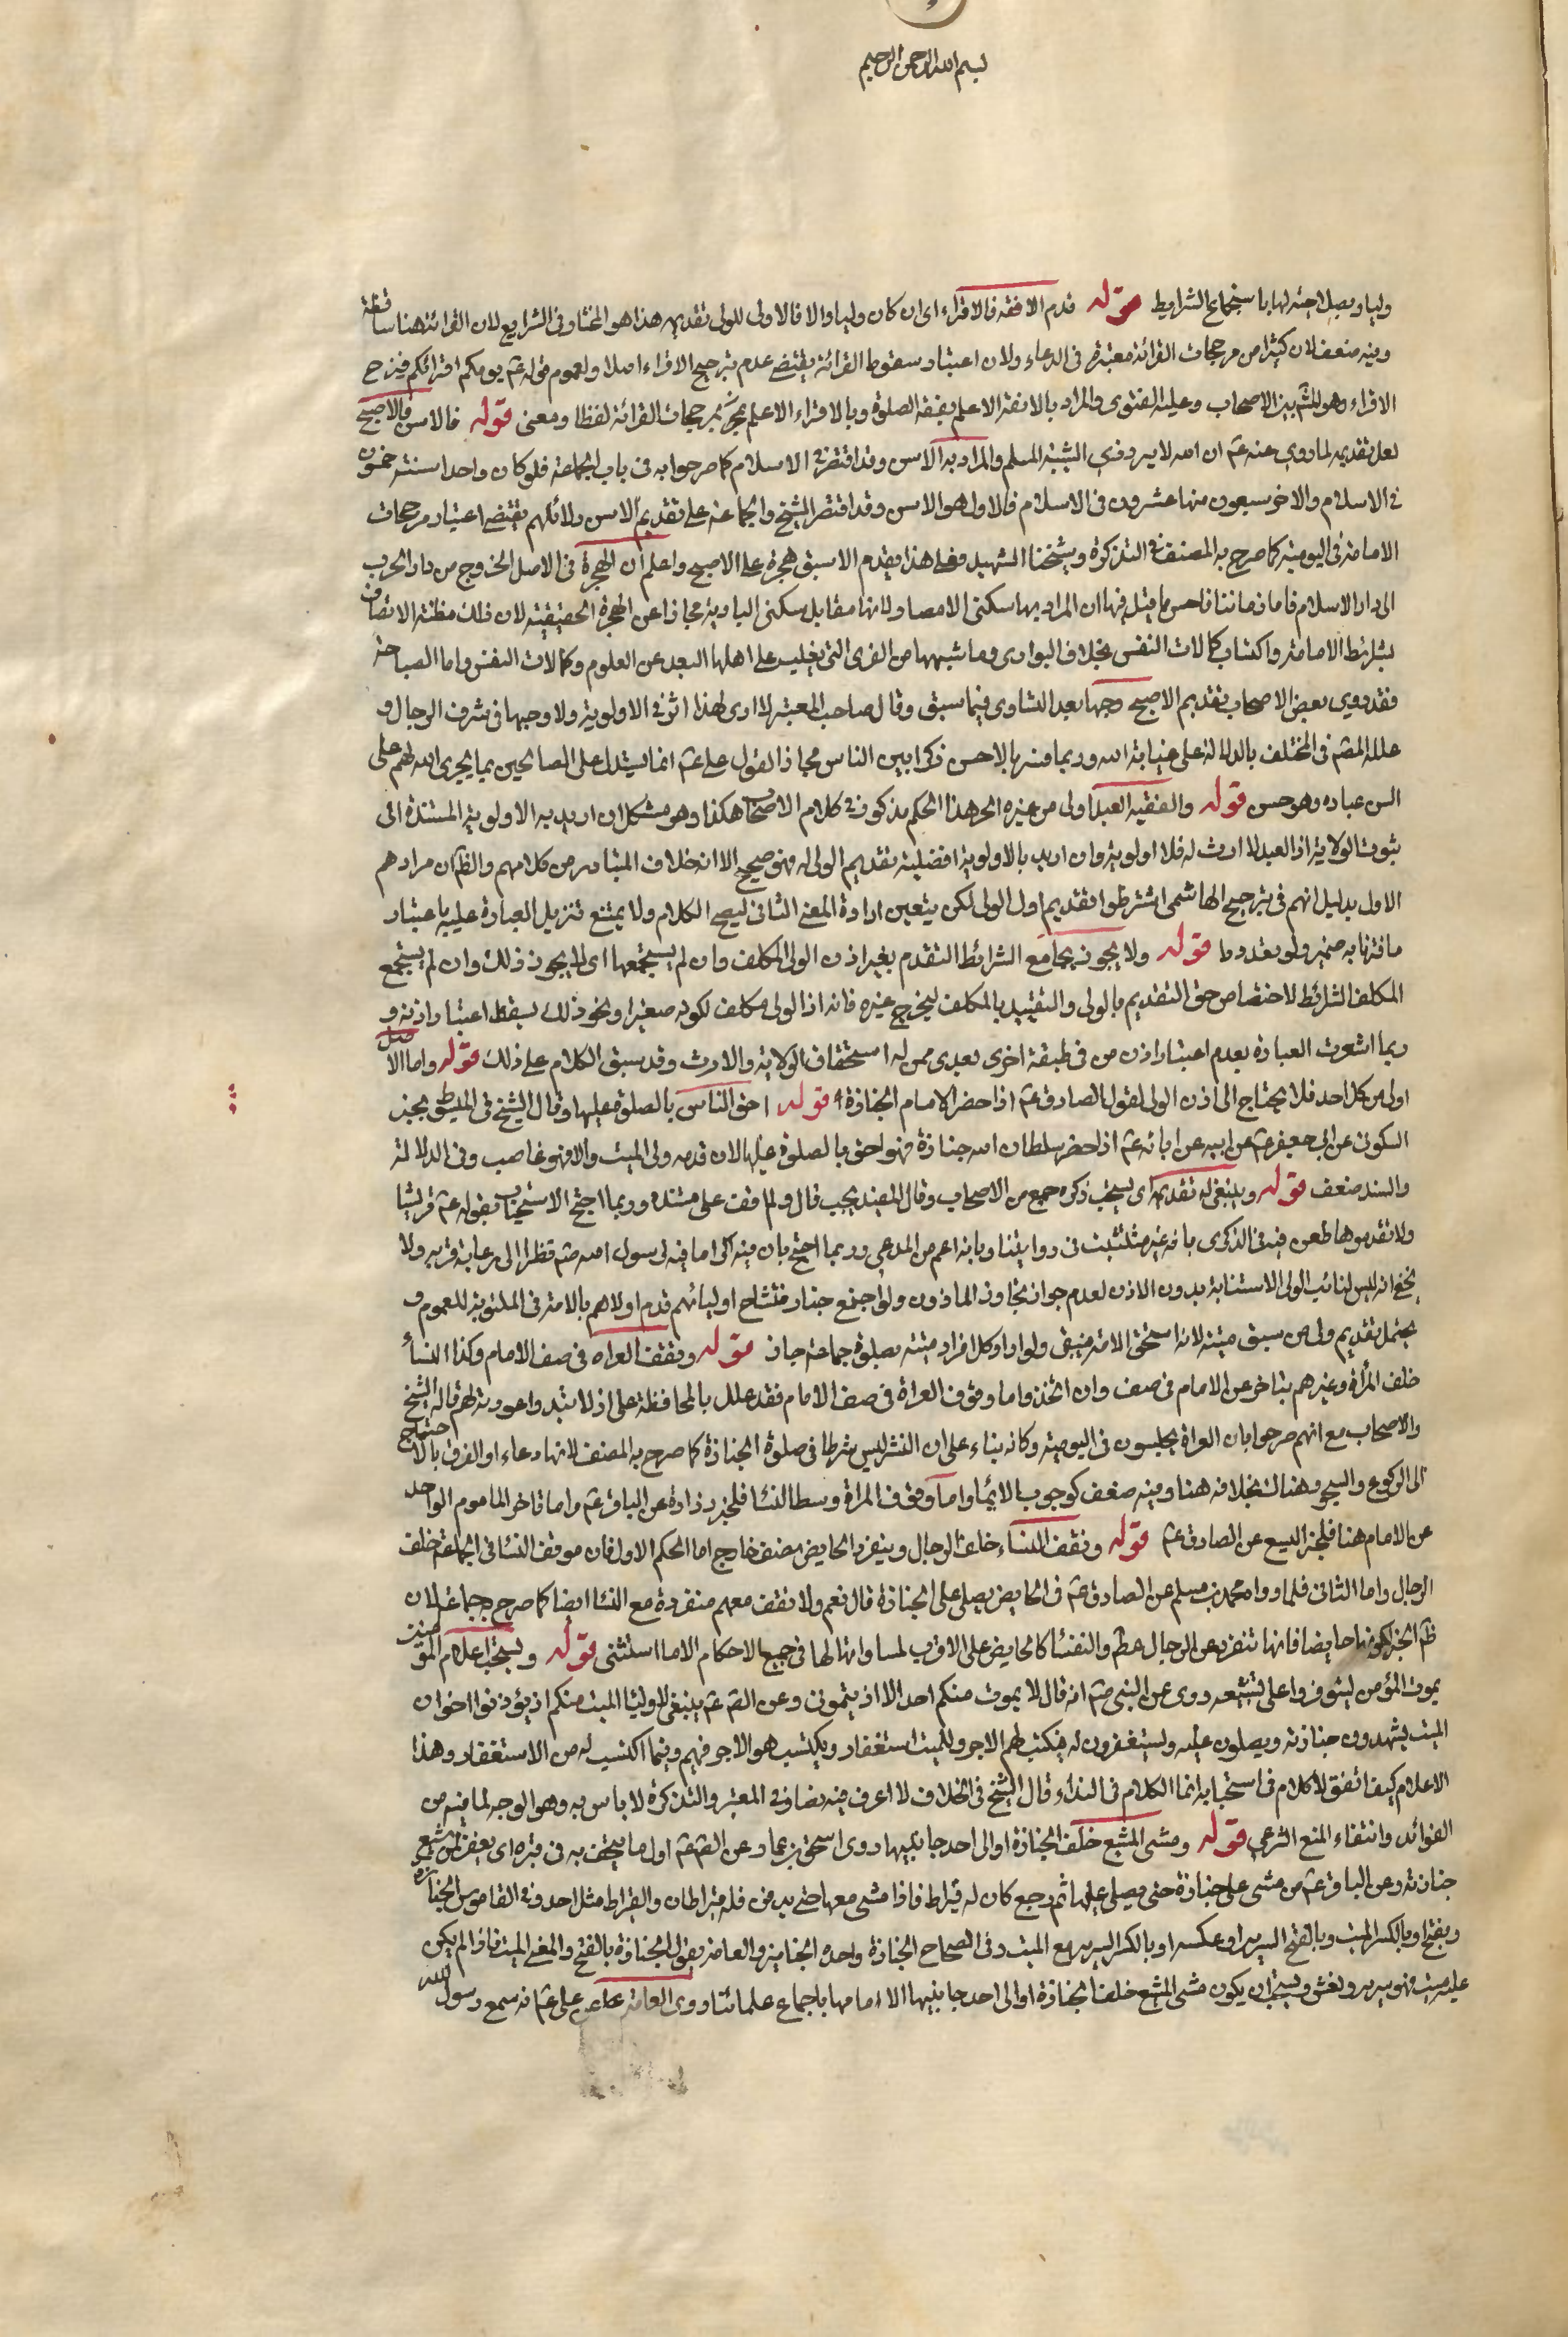 بسم الله الرحمن الرحيم
وليا ويصلاحيته لها باستجماع الشرايط قوله قدم الافقه فالاقراء اى ان كان وليا والا فالاولى للولى تقديمه هذا هو المختار وفى الشرايع لان القرائة هنا ساقطة
وفيه ضعف لان كثيرا من مرجحات القرائة معتبرة فى الدعاء ولان اعتبار سقوط القرائة يقتضى عدم ترجيح الاقراء اصلا ولعموم قوله عم يومكم اقرائكم فيرجح
الاقراء وهو المشهور بين الاصحاب وعليه الفتوى والمراد بالافقه الاعلم بفقه الصلوة وبالاقراء الاعلم بمرجحات القرائة لفظا ومعنى قوله فالاسن فالاصبح
لعل تقديمه لما روى عنه عم ان الله لا يرد ذى الشيبة المسلم والمراد به الاسن فى الاسلام كما صرحوا به فى باب الجماعة فلو كان واحدا سنه خمسون
فى الاسلام والاخر سبعون منها عشرون فى الاسلام فالاول هو الاسن وقد اقتصر الشيخ والجماعة على تقديم الاسن ودلائلهم يقتضى اعتبار مرجحات
الامامة فى اليومية كما صرح به المصنف فى التذكرة وشيخنا الشهيد فعلى هذا يقدم الاسبق هجرة على الاصبح واعلم ان الهجرة فى الاصل الخروج من دار الحرب
الى دار الاسلام فاما زماننا فاحسن ما قيل فيها ان المراد بها سكنى الامصار لانها مقابل سكنى البادية مجازا عن الهجرة الحقيقية لان ذلك مظنة الاتصاف
بشرائط الامامة واكتساب كمالات النفس بخلاف البوادى وما شبهها من القرى التى يغلب على اهلها البعد عن العلوم وكمالات النفس واما الصباحة
فقد روى بعض الاصحاب تقديم الاصبح وجها بعد التساوى فيما سبق وقال صاحب المعتبر لا ارى لهذا اثرا فى الاولوية ولا وجها فى شرف الرجال و
علله المصنف فى المختلف بالدلالة على عناية الله وربما فسرها بالاحسن ذكرا بين الناس مجازا لقول على عم انما يستدل على الصالحين بما يجرى الله لهم على
السن عباده وهو حسن قوله والفقيه العبد اولى من غيره الحر هذا الحكم مذكور فى كلام الاصحاب هكذا وهو مشكل ان اريد به الاولوية المستندة الى
ثبوت الولاية اذ العبد لا ارث له فلا اولوية وان اريد بالاولوية افضلية تقديم الولى له فهو صحيح الا انه خلاف المتبادر من كلامهم والظ ان مرادهم
الاول بدليل انهم فى ترجيح الهاشمى اشترطوا تقديم اول الولى لكن يتعين ارادة المعنى الثانى ليصح الكلام ولا يمتنع تنزيل العبارة عليه باعتبار
قوله ولا يجوز لجامع الشرائط التقدم بغير اذن الولى المكلف وان لم يستجمعها اى لا يجوز ذلك وان لم يستجمع
المكلف الشرائط لاختصاص حق التقديم بالولى والتقييد بالمكلف ليخرج غيره فانه اذ الولى مكلف لكونه صغيرا ونحو ذلك يسقط اعتبار اذنه و
ربما اشعرت العبارة بعدم اعتبار اذن من فى طبقة اخرى بعدى ممن له استحقاق الولاية والارث وقد سبق الكلام على ذلك قوله وامام الاصل
اولى من كل احد فلا يحتاج الى اذن الولى لقول الصادق عم اذا حضر الامام الجنازة فهو احق الناس بالصلوة عليها وقال الشيخ فى المبسوط بخبر
السكونى عن ابى جعفر عن ابيه عن ابائه عم اذا حضر سلطان الله جنازة فهو احق بالصلوة عليها ان قدمه ولى الميت والا فهو غاصب وفى الدلالة
والسند ضعف قوله وينبغى له تقديمه اى يستحب ذكره جمع من الاصحاب وقال المفيد يجب قال ولم اقف على مستنده وربما احتج الاستحباب بقوله عم قريشا
ولا تقدموها طعن فيه فى الذكرى بانه غير مثبت فى رواياتنا وبانه اعم من المدعى وربما احتج بان فيه اكراما فيه لرسول الله صم نظرا الى رعاية قربه ولا
يخفى انه ليس لنائب الولى الاستنابة بدون الاذن لعدم جواز تجاوز الماذون ولو اجتمع جنائز فتشاح اوليائهم قدم اولاهم بالامامة فى المكتوبة للعموم و
يحتمل تقديم ولى من سبق ميته لانه استحق الامامة فيبقى ولو ارادوا كل افراد ميته بصلوة جماعة جاز قوله وتقف العراة فى صف الامام وكذا النساء
خلف المرأة وغيرهم يتاخر عن الامام فى صف وان اتحد واما وقوف العراة فى صف الامام فقد علل بالمحافظة على ان لا تبدوا عورته لهم قاله الشيخ
والاصحاب مع انهم صرحوا بان العراة يجلسون فى اليومية وكانه بناء على ان الستر ليس شرطا فى صلوة الجنازة كما صرح به المصنف لانها دعاء او الفرق بالاحتياج
الى الركوع والسجود هناك بخلافه هنا وفيه ضعف كوجوب الايماء واما وقوف المراة وسط النساء فلخبر زرارة عن الباقر عم واما تاخر الماموم الواحد
عن الامام هنا فلخبر اليسع عن الصادق عم قوله وتقف النساء خلف الرجال وينفرد الحايض بصف خارج اما الحكم الاول فان موقف النساء فى الجماعة خلف
الرجال واما الثانى فلما رواه محمد بن مسلم عن الصادق عم فى الحايض يصلى على الجنازة قال نعم ولا تقف معهم منفردة مع النساء ايضا كما صرح به جماعة لان
ظ الخبر كونها حايضا فانها تنفرد عن الرجال مط والنفساء كالحايض على الاقرب لمساواتها لها فى جميع الاحكام الا ما استثنى قوله ويستحب اعلام المؤمنين
بموت المؤمن ليتوفروا على تشييعه روى عن النبى صم انه قال لا يموت منكم احد الا اذنتمونى وعن الصم عم ينبغى لاولياء الميت منكم ان يؤذنوا اخوان
الميت يشهدون جنازته ويصلون عليه ويستغفرون له فيكتب لهم الاجر وللميت استغفار ويكتسب هو الاجر فيهم وفيما اكتسب له من الاستغفار وهذا
الاعلام كيف اتفق لا كلام فى استحبابه انما الكلام فى النداء قال الشيخ فى الخلاف لا اعرف فيه نصا وفى المعتبر والتذكرة لا باس به وهو الوجه لما فيه من
الفوائد وانتفاء المنع الشرعى قوله ومشى المشيع خلف الجنازة او الى احد جانبيها روى اسحق بن عمار عن الصم عم اول ما يتحف به فى قبره ان يغفر لمن شيع
جنازته وعن الباقر عم من مشى على جنازة حتى يصلى عليها ثم رجع كان له قيراط فاذا مشى معها حتى يدفن فله قيراطان والقيراط مثل احد وفى القاموس الجنازة
ويفتح او بالكسر الميت وبالفتح السرير او عكسه او بالكسر السرير مع الميت وفى الصحاح الجنازة واحده الجنايز والعامة يقول الجنازة بالفتح والمعنى الميت فاذا لم يكن
عليه ميت فهو سرير ونعش ويستحب ان يكون مشى المشيع خلف الجنازة او الى احد جانبيها الا امامها باجماع علمائنا وروى العامة عن على عم انه سمع رسول الله